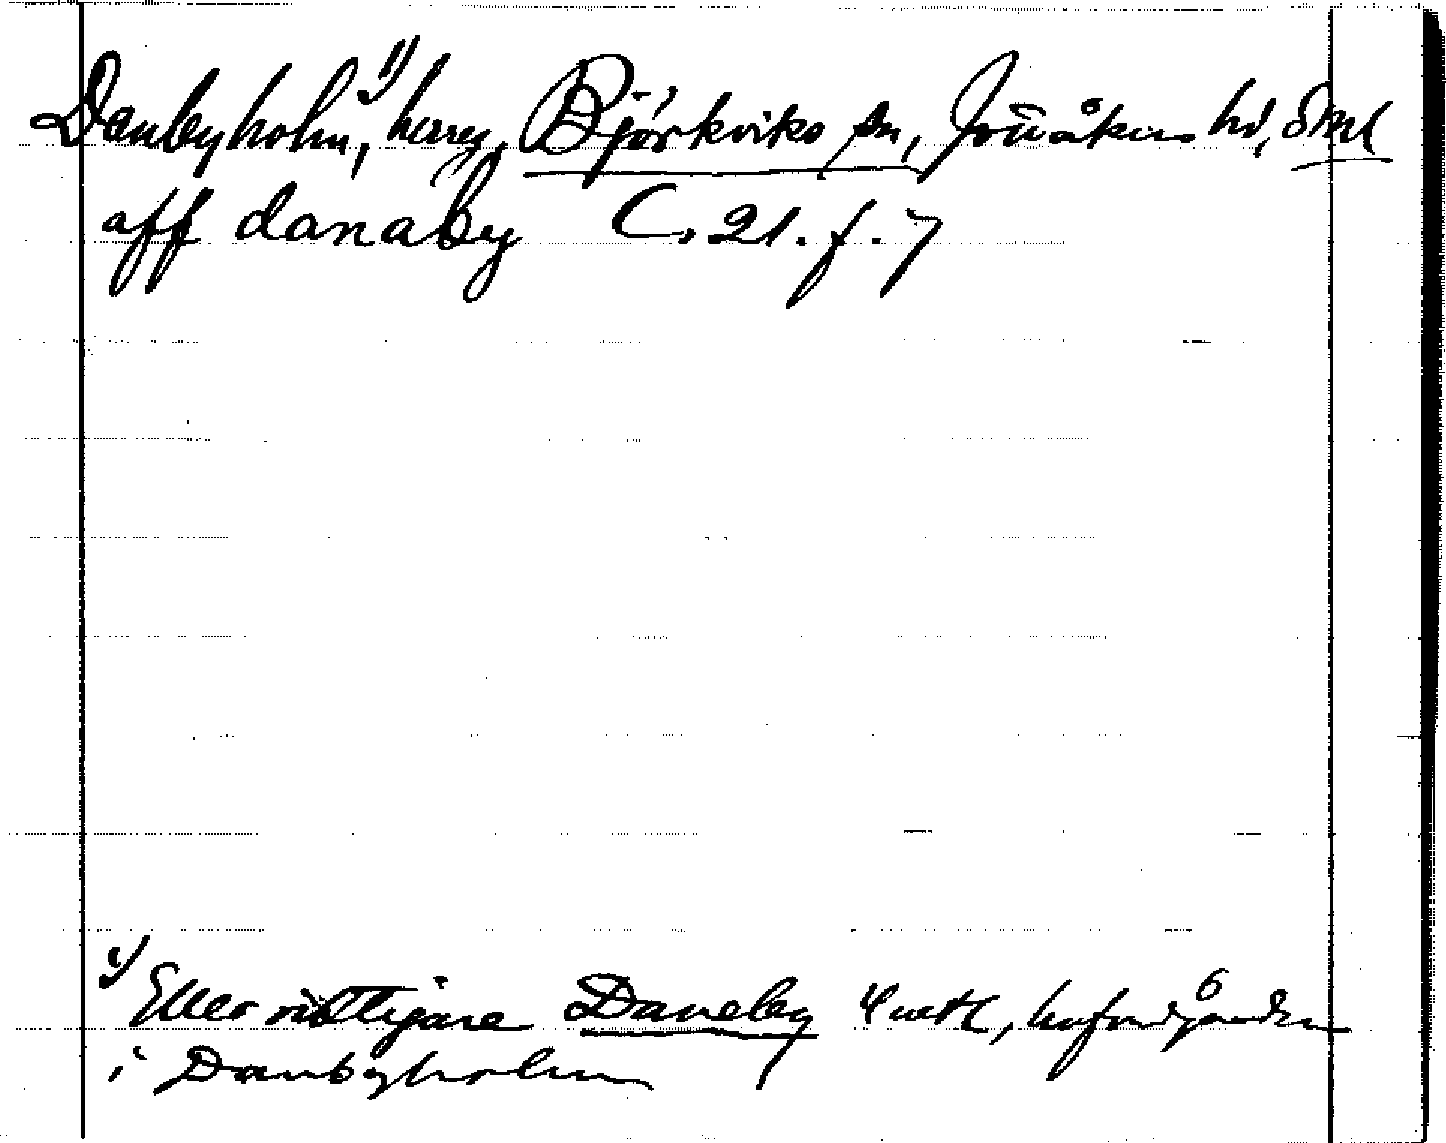 Danbyholm,¹⁾ herrg, Björkviks sn, Jönåkers hd, Sdml
aff danaby C. 21. f. 7
¹⁾ Eller riktigare Daneby 4 mtl, hufvudgården
i Danbyholm